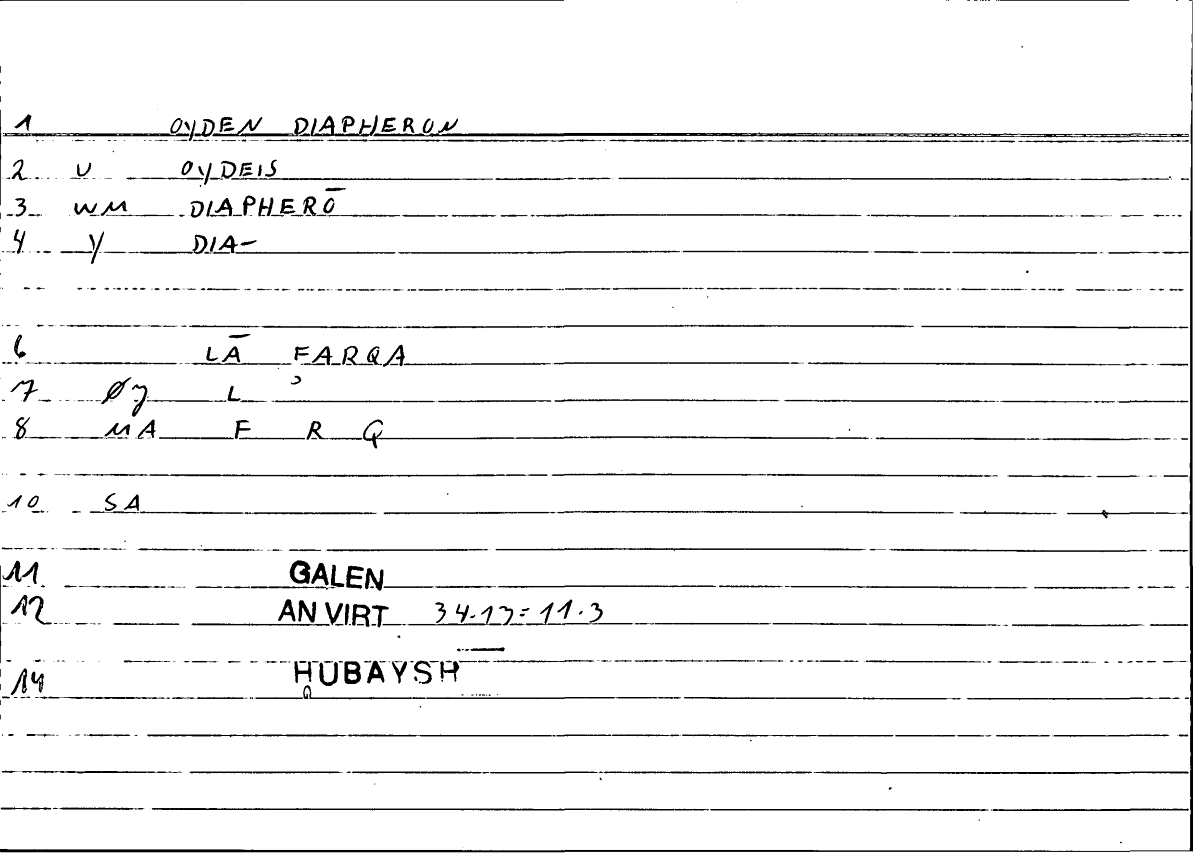 1 OYDEN DIAPHERON
2 U OYDEIS
3 WM DIAPHERŌ
4 Y DIA-
6 LĀ FARQA
7 Øj L ʾ
8 MA F R Q
10 SA
11 GALEN
12 AN VIRT 34.17=11.3
14 ḤUBAYSH